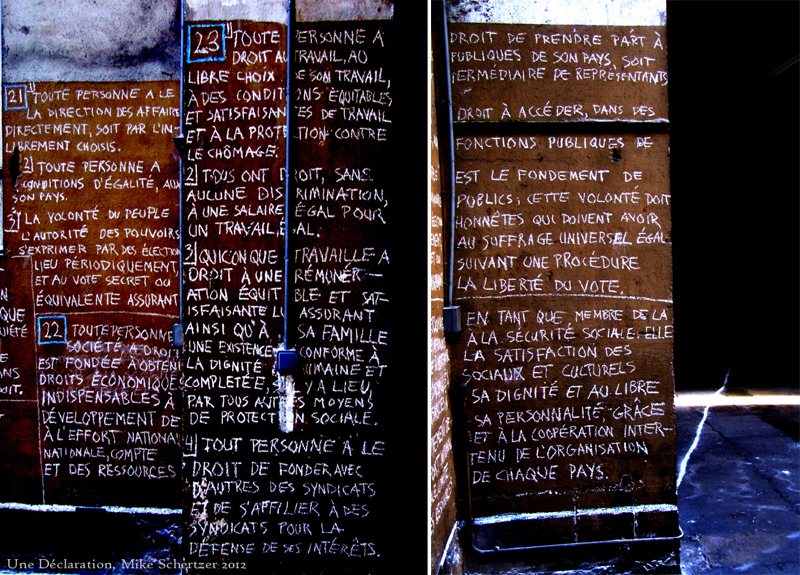 21 1) TOUTE PERSONNE A LE
LA DIRECTION DES AFFAIRE
DIRECTEMENT, SOIT PAR L'IN
LIBREMENT CHOISIS.
2) TOUTE PERSONNE A
CONDITIONS D'ÉGALITÉ, AUX
SON PAYS.
3) LA VOLONTÉ DU PEUPLE
L'AUTORITÉ DES POUVOIRS
S'EXPRIMER PAR DES ÉLECTION
LIEU PÉRIODIQUEMENT,
ET AU VOTE SECRET OU
ÉQUIVALENTE ASSURANT
22 TOUTE PERSONNE
SOCIÉTÉ A DROIT
EST FONDÉE À OBTENI
DROITS ÉCONOMIQUES
INDISPENSABLES À
DÉVELOPPEMENT DE
À L'EFFORT NATIONAL
NATIONALE, COMPTE
ET DES RESSOURCES
QUE
IÉTÉ
ANS
OIT.
23 1) TOUTE PERSONNE A
DROIT AU TRAVAIL, AU
LIBRE CHOIX DE SON TRAVAIL,
À DES CONDITIONS ÉQUITABLES
ET SATISFAISANTES DE TRAVAIL
ET À LA PROTECTION CONTRE
LE CHÔMAGE.
2) TOUS ONT DROIT, SANS
AUCUNE DISCRIMINATION,
À UNE SALAIRE ÉGAL POUR
UN TRAVAIL ÉGAL.
3) QUICONQUE TRAVAILLE A
DROIT À UNE RÉMUNÉR-
ATION ÉQUITABLE ET SAT-
ISFAISANTE LUI ASSURANT
AINSI QU'À SA FAMILLE
UNE EXISTENCE CONFORME À
LA DIGNITÉ HUMAINE ET
COMPLÉTÉE, S'IL Y A LIEU,
PAR TOUS AUTRES MOYENS
DE PROTECTION SOCIALE.
4) TOUT PERSONNE A LE
DROIT DE FONDER AVEC
D'AUTRES DES SYNDICATS
ET DE S'AFFILIER À DES
SYNDICATS POUR LA
DÉFENSE DE SES INTÉRÊTS.
DROIT DE PRENDRE PART À
PUBLIQUES DE SON PAYS, SOIT
TERMÉDIAIRE DE REPRÉSENTANTS
DROIT À ACCÉDER, DANS DES
FONCTIONS PUBLIQUES DE
EST LE FONDEMENT DE
PUBLICS; CETTE VOLONTÉ DOIT
HONNÊTES QUI DOIVENT AVOIR
AU SUFFRAGE UNIVERSEL ÉGAL
SUIVANT UNE PROCÉDURE
LA LIBERTÉ DU VOTE.
EN TANT QUE MEMBRE DE LA
À LA SÉCURITÉ SOCIALE. ELLE
LA SATISFACTION DES
SOCIAUX ET CULTURELS
SA DIGNITÉ ET AU LIBRE
SA PERSONNALITÉ, GRÂCE
ET À LA COOPÉRATION INTER-
TENU DE L'ORGANISATION
DE CHAQUE PAYS.
Une Déclaration, Mike Schertzer 2012